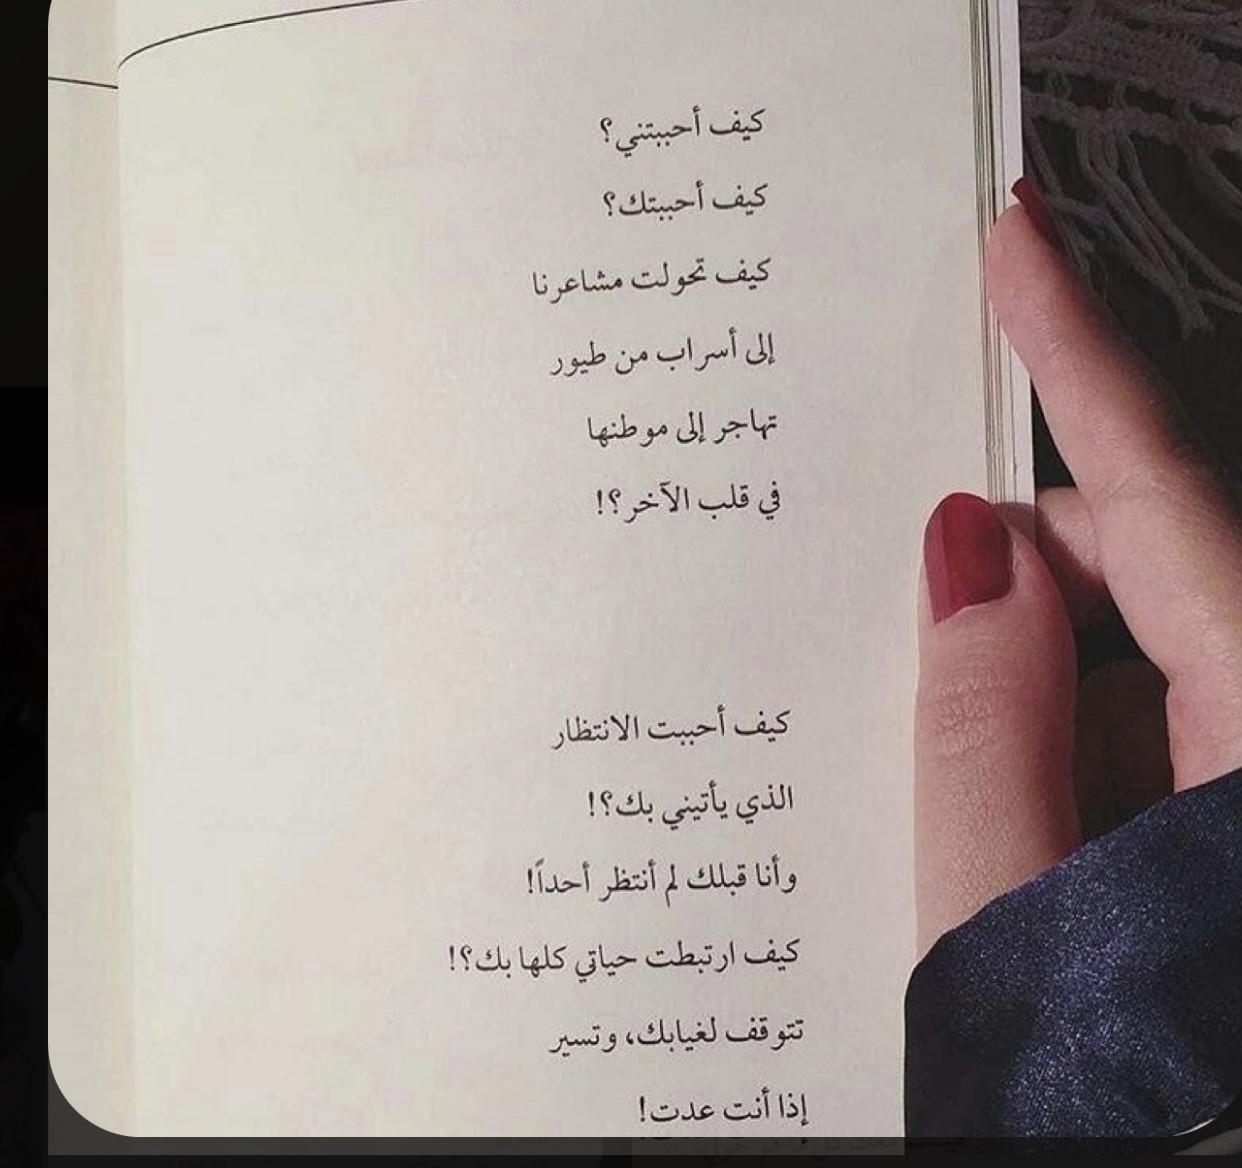 كيف أحببتني؟
كيف أحببتك؟
كيف تحولت مشاعرنا
إلى أسراب من طيور
تهاجر إلى موطنها
في قلب الآخر؟!
كيف أحببت الانتظار
الذي يأتيني بك؟!
وأنا قبلك لم أنتظر أحداً!
كيف ارتبطت حياتي كلها بك؟!
تتوقف لغيابك، وتسير
إذا أنت عدت!